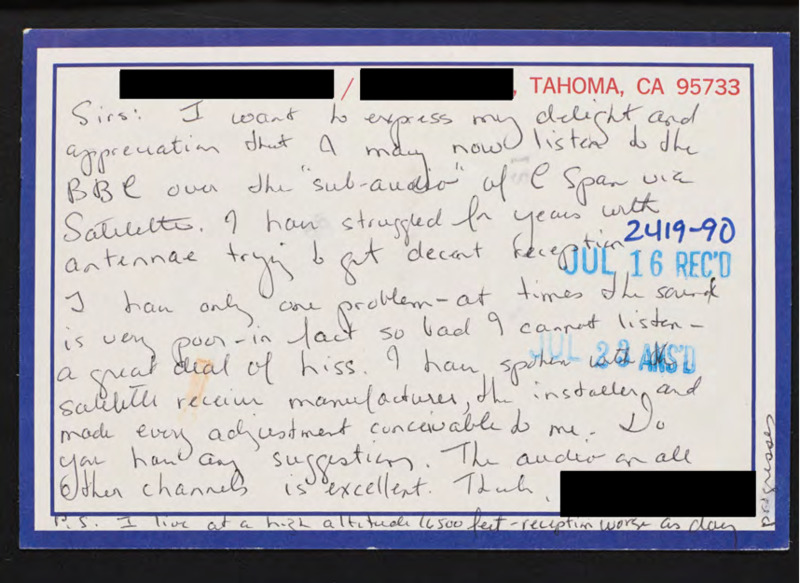 / , TAHOMA, CA 95733
Sirs: I want to express my delight and
appreciation that I may now listen to the
BBC over the "sub-audio" of C Span via
Satellite. I have struggled for years with
antennae trying to get decent reception
2419-90
JUL 16 REC'D
I have only one problem - at times the sound
is very poor - in fact so bad I cannot listen -
a great deal of hiss. I have spoken with the
JUL 23 ANS'D
satellite receiver manufacturer, the installer, and
made every adjustment conceivable to me. Do
you have any suggestions. The audio on all
other channels is excellent. Thank,
P.S. I live at a high altitude 6500 feet - reception worse as day
progresses